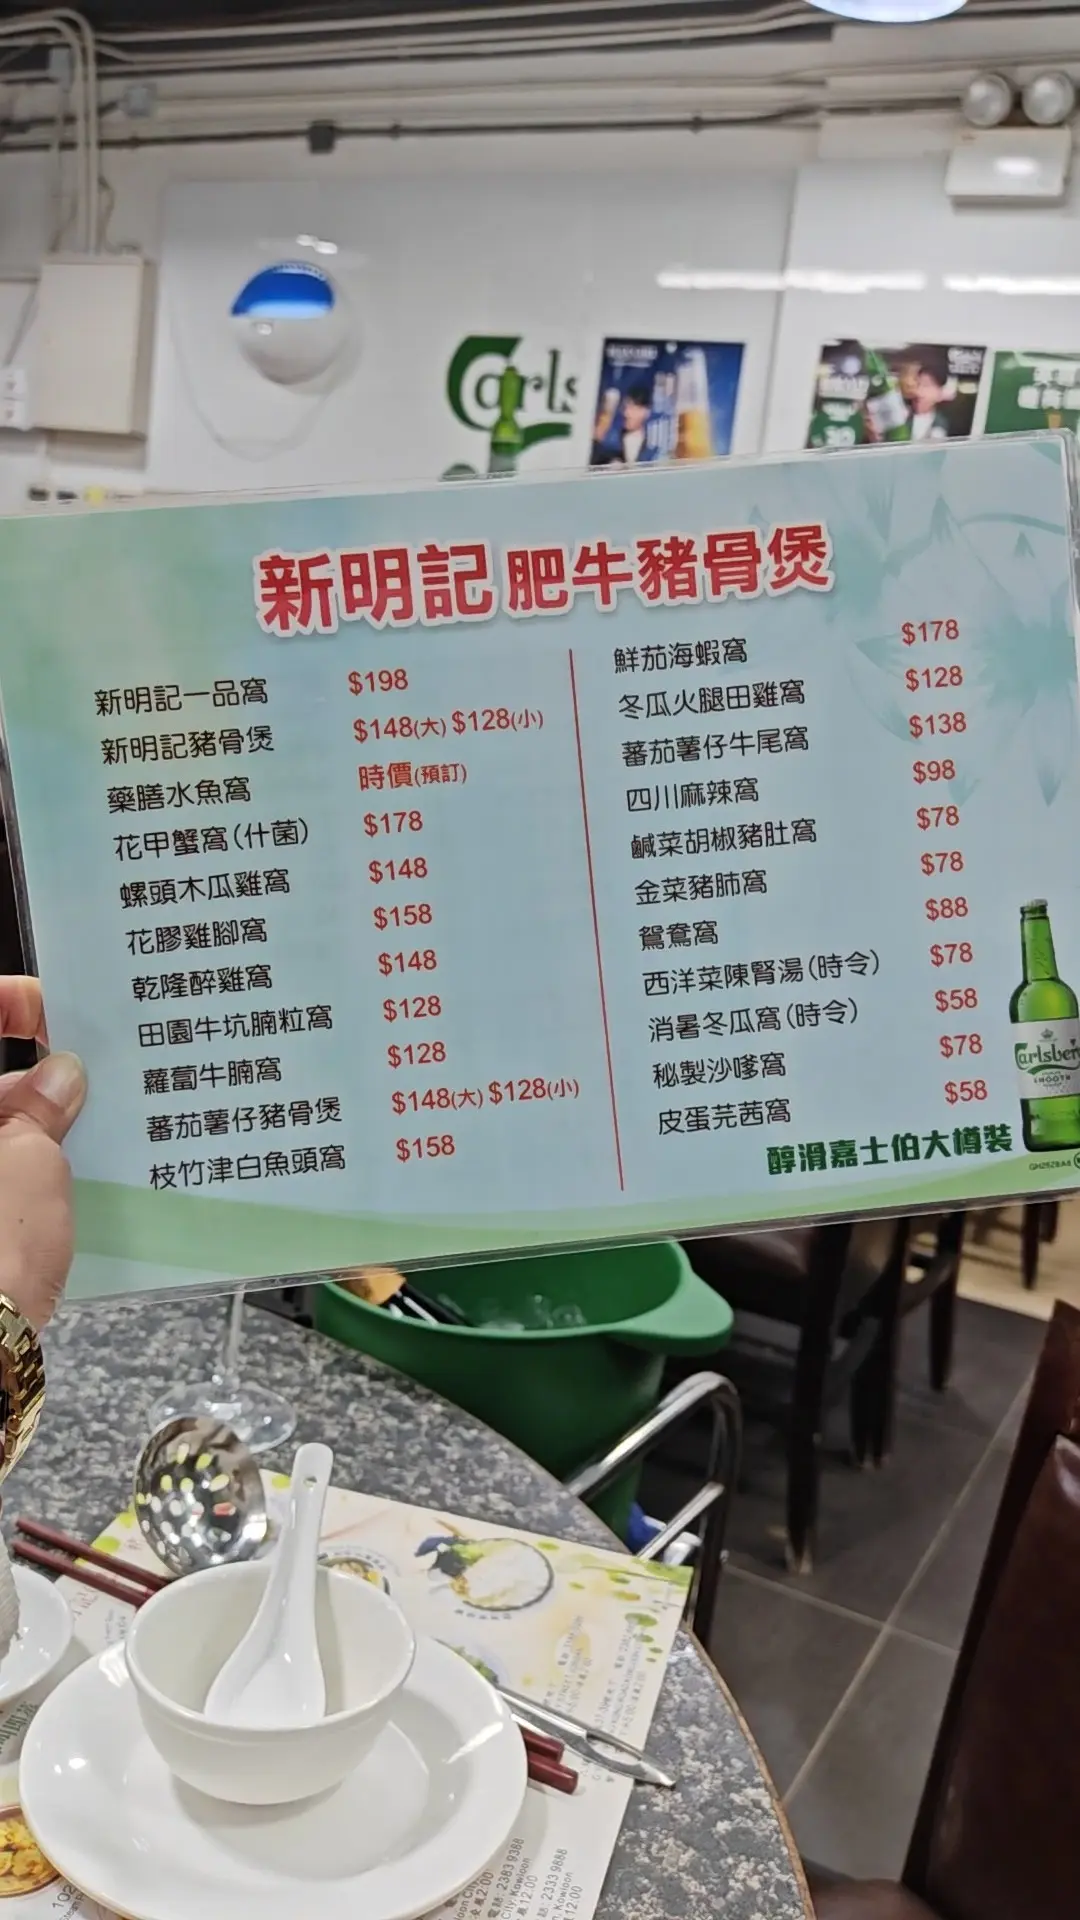 Carls
新明記肥牛豬骨煲
新明記一品窩 $198
新明記豬骨煲 $148(大) $128(小)
藥膳水魚窩 時價(預訂)
花甲蟹窩(什菌) $178
螺頭木瓜雞窩 $148
花膠雞腳窩 $158
乾隆醉雞窩 $148
田園牛坑腩粒窩 $128
蘿蔔牛腩窩 $128
蕃茄薯仔豬骨煲 $148(大) $128(小)
枝竹津白魚頭窩 $158
鮮茄海蝦窩 $178
冬瓜火腿田雞窩 $128
蕃茄薯仔牛尾窩 $138
四川麻辣窩 $98
鹹菜胡椒豬肚窩 $78
金菜豬肺窩 $78
鴛鴦窩 $88
西洋菜陳腎湯(時令) $78
消暑冬瓜窩(時令) $58
秘製沙嗲窩 $78
皮蛋芫茜窩 $58
醇滑嘉士伯大樽裝
Carlsberg
SMOOTH
電話: 2383 9388
City, Kowloon
2333 9888
Kowloon